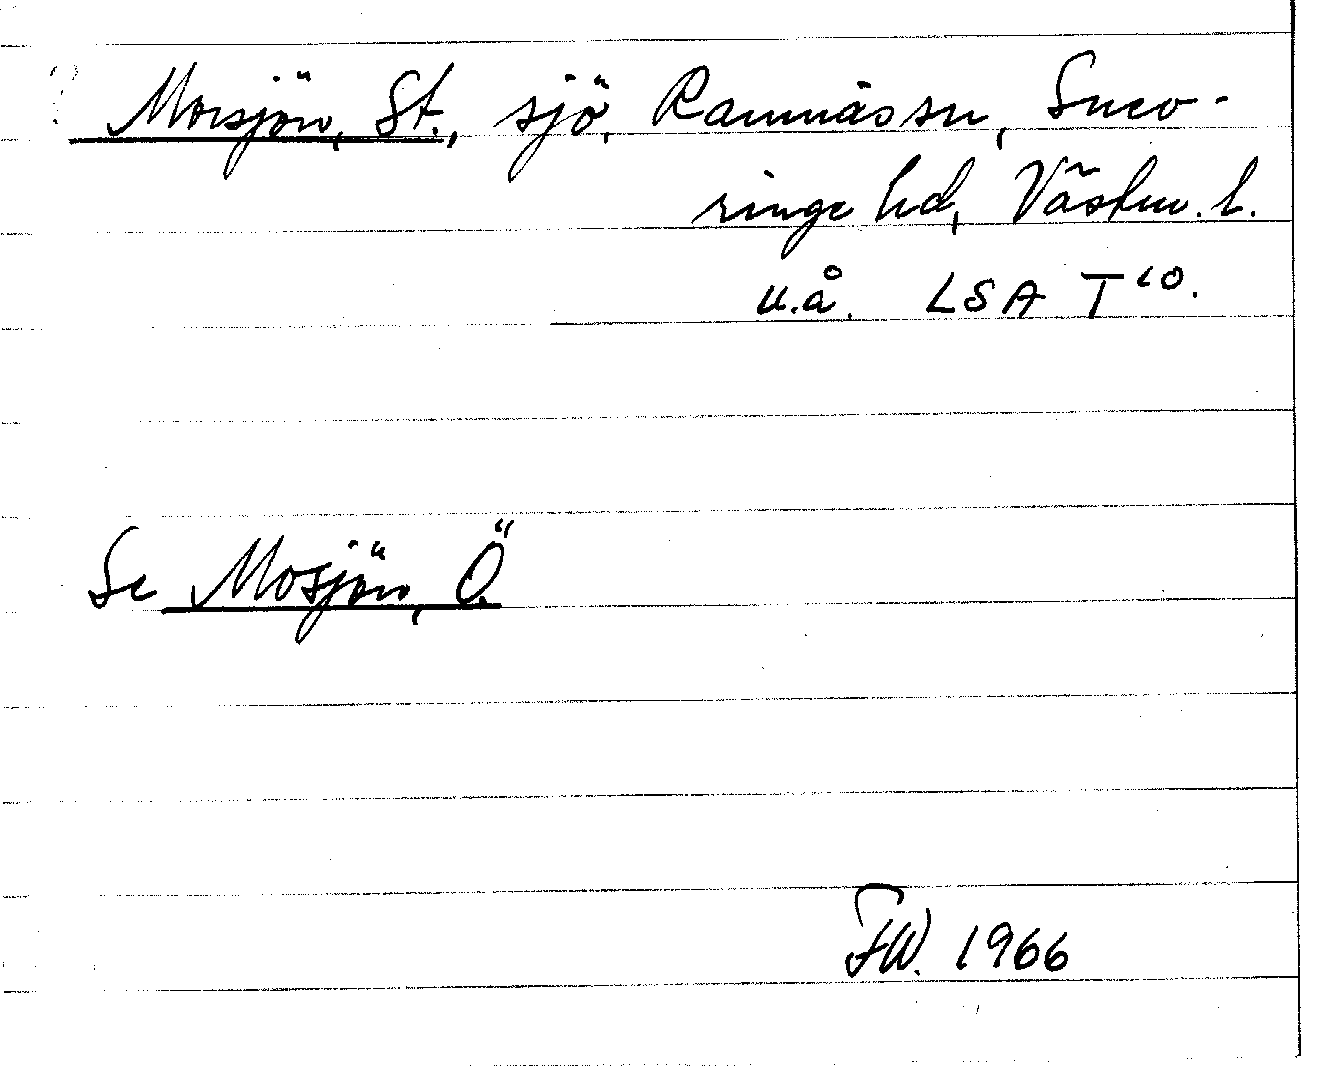 Morsjön, St., sjö, Ramnäs sn, Snev-
ringe hd, Västm. l.
u.å. LSA T 10.
Se Mosjön, Ö.
FW. 1966